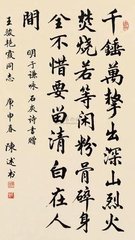 千錘萬擊出深山烈火
焚燒若等閒骨碎身
全不留清白在人
間
明于謙咏石灰詩書贈
王艳霞同志 庚申春 陳述书